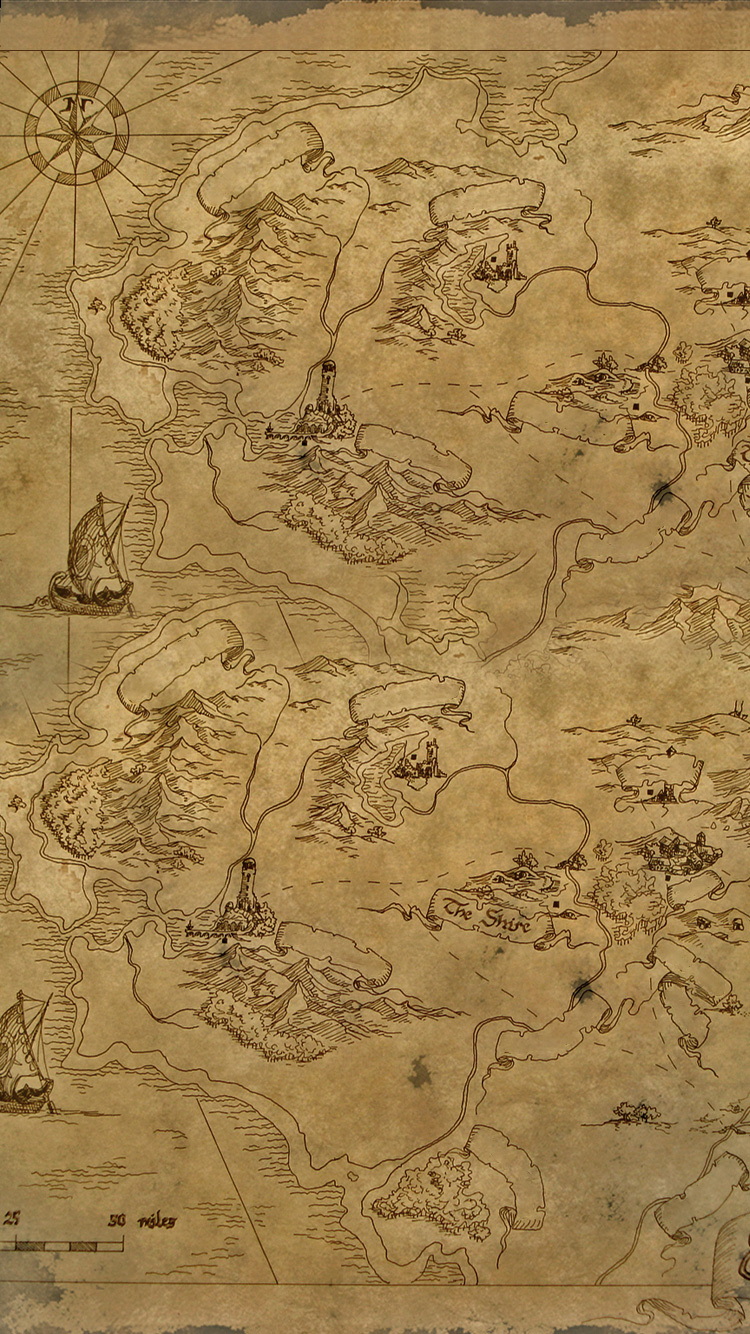 N
The Shire
25 50 miles